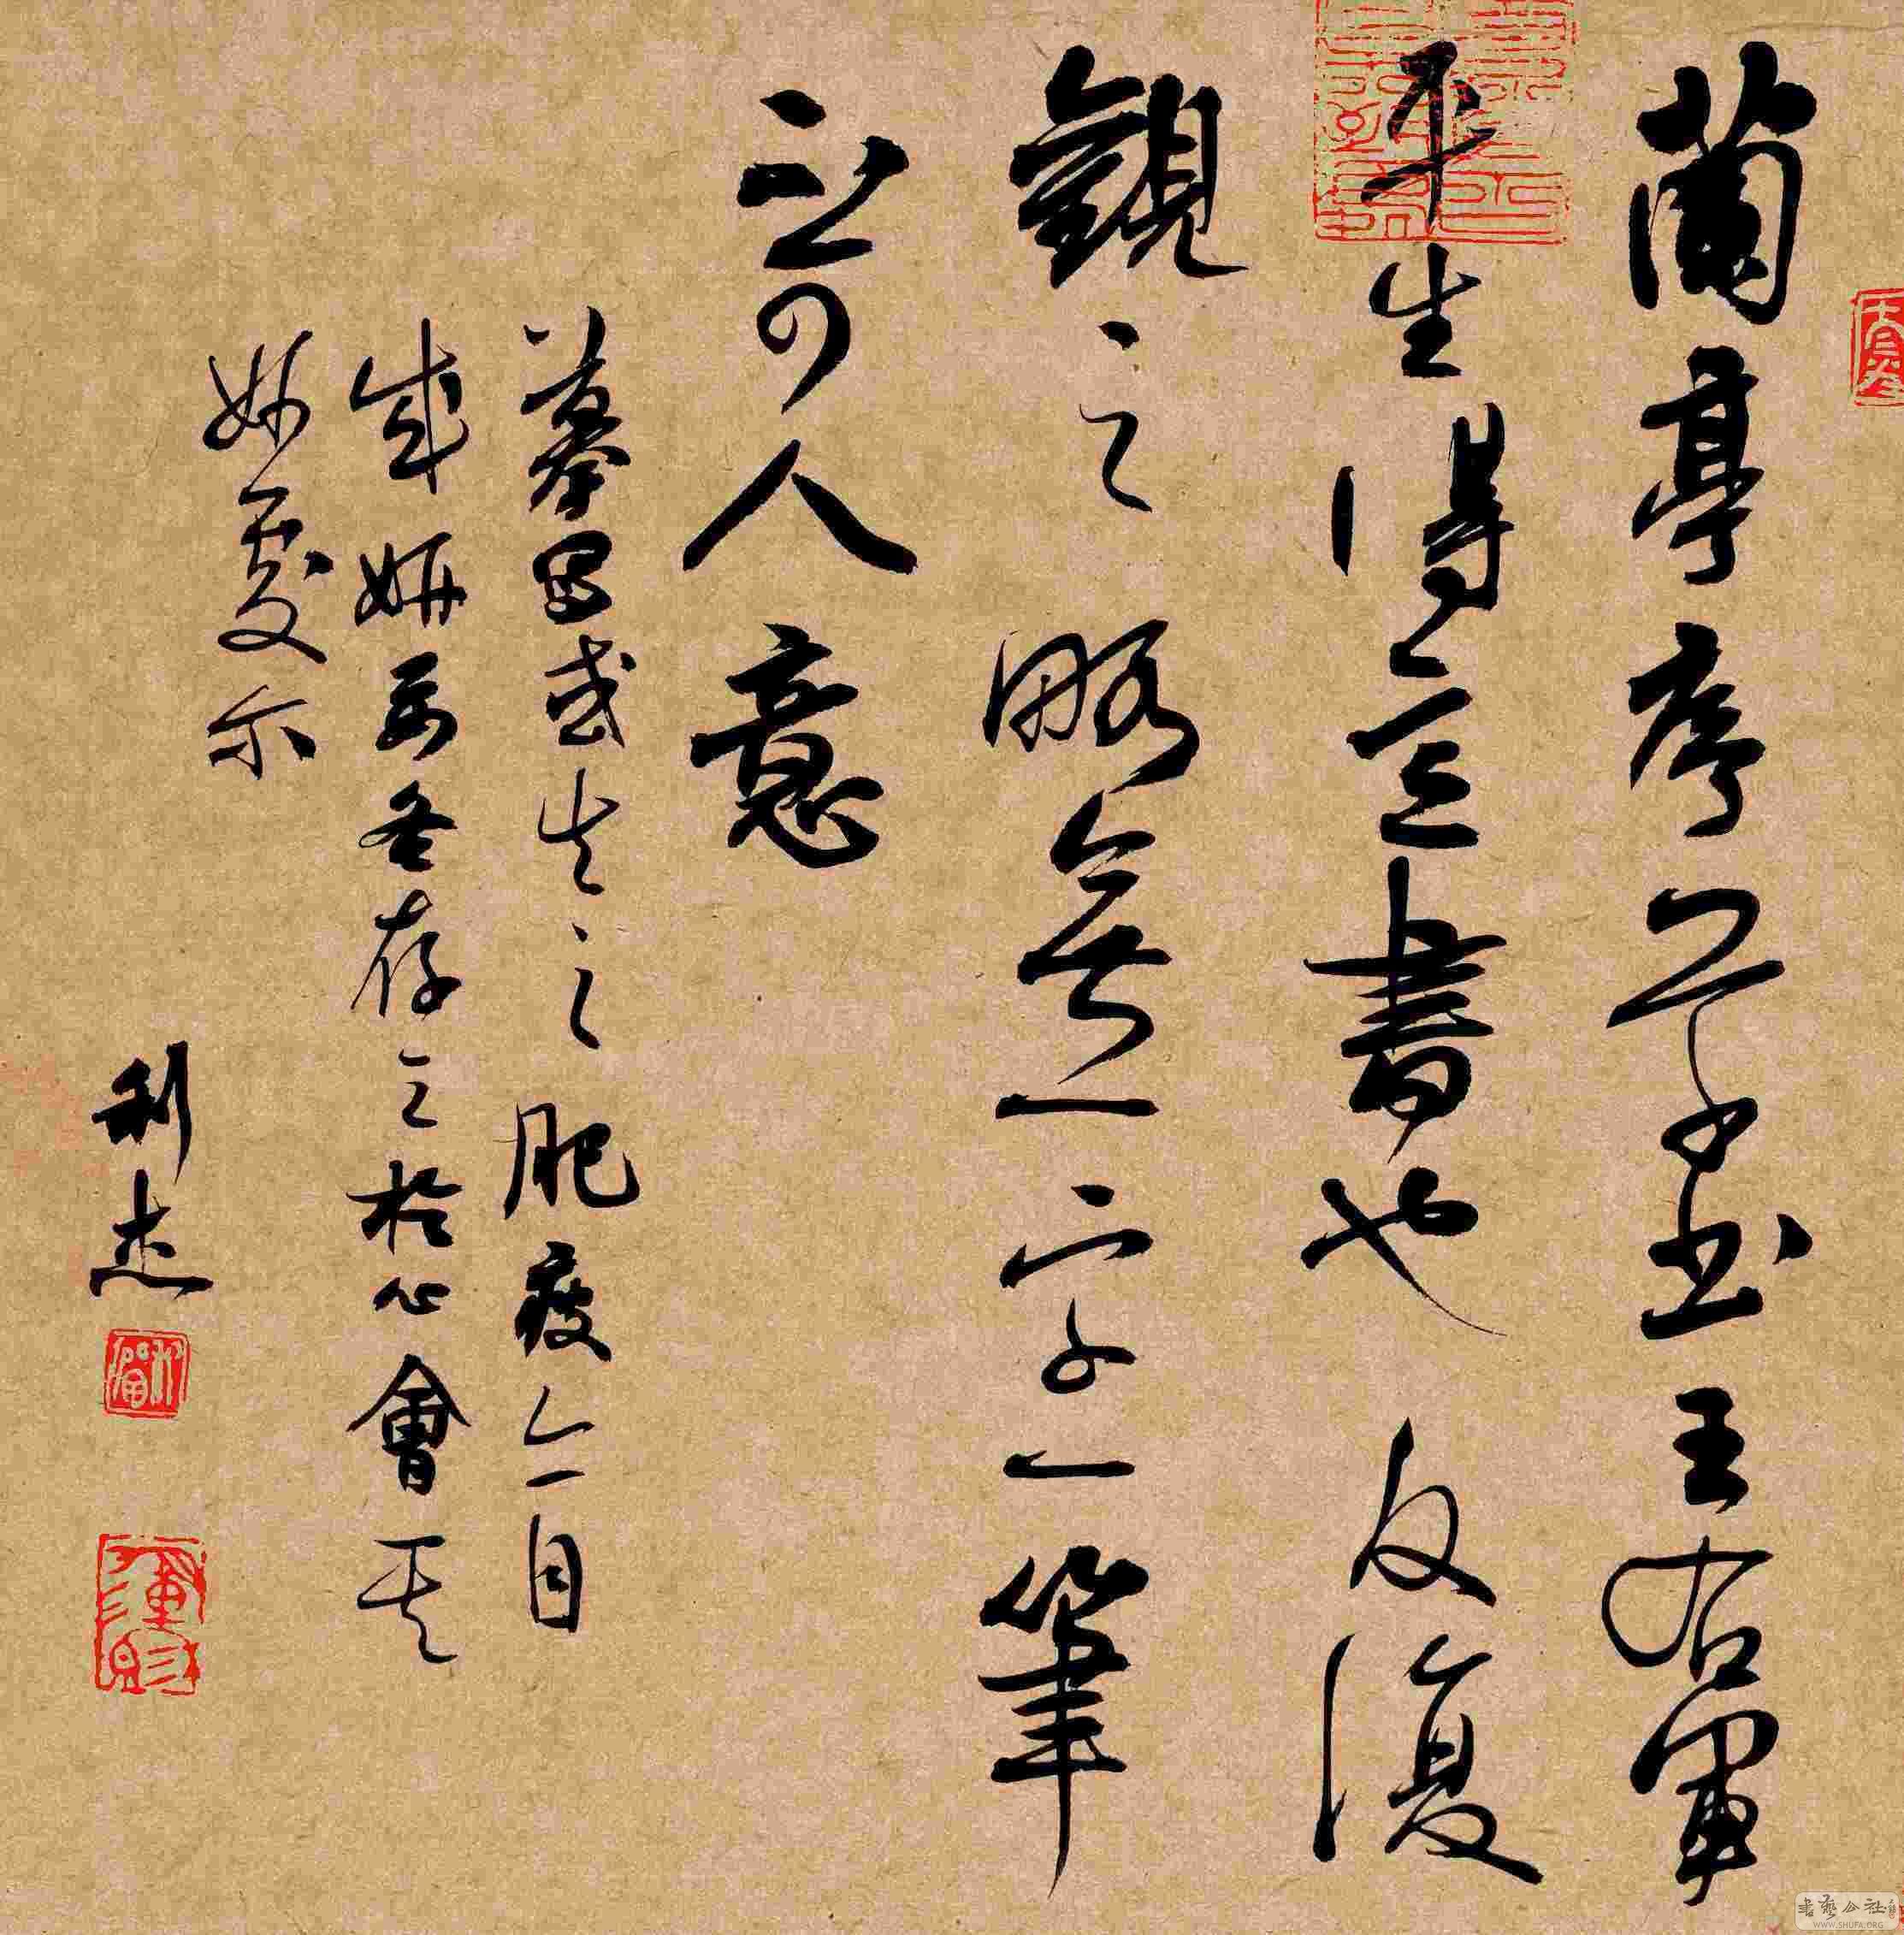 蘭亭序草書王右軍
平生得意書也反復
觀之略無一字一筆
不可人意
摹寫或失之肥瘦亦自
成妍要各存之於心會其
妙處尔
利杰
書藝公社
WWW.SHUFA.ORG